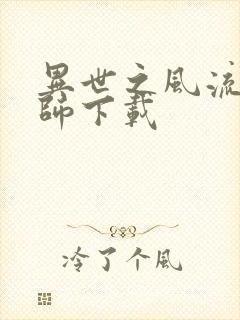 異世之風流
師下載
冷了个風